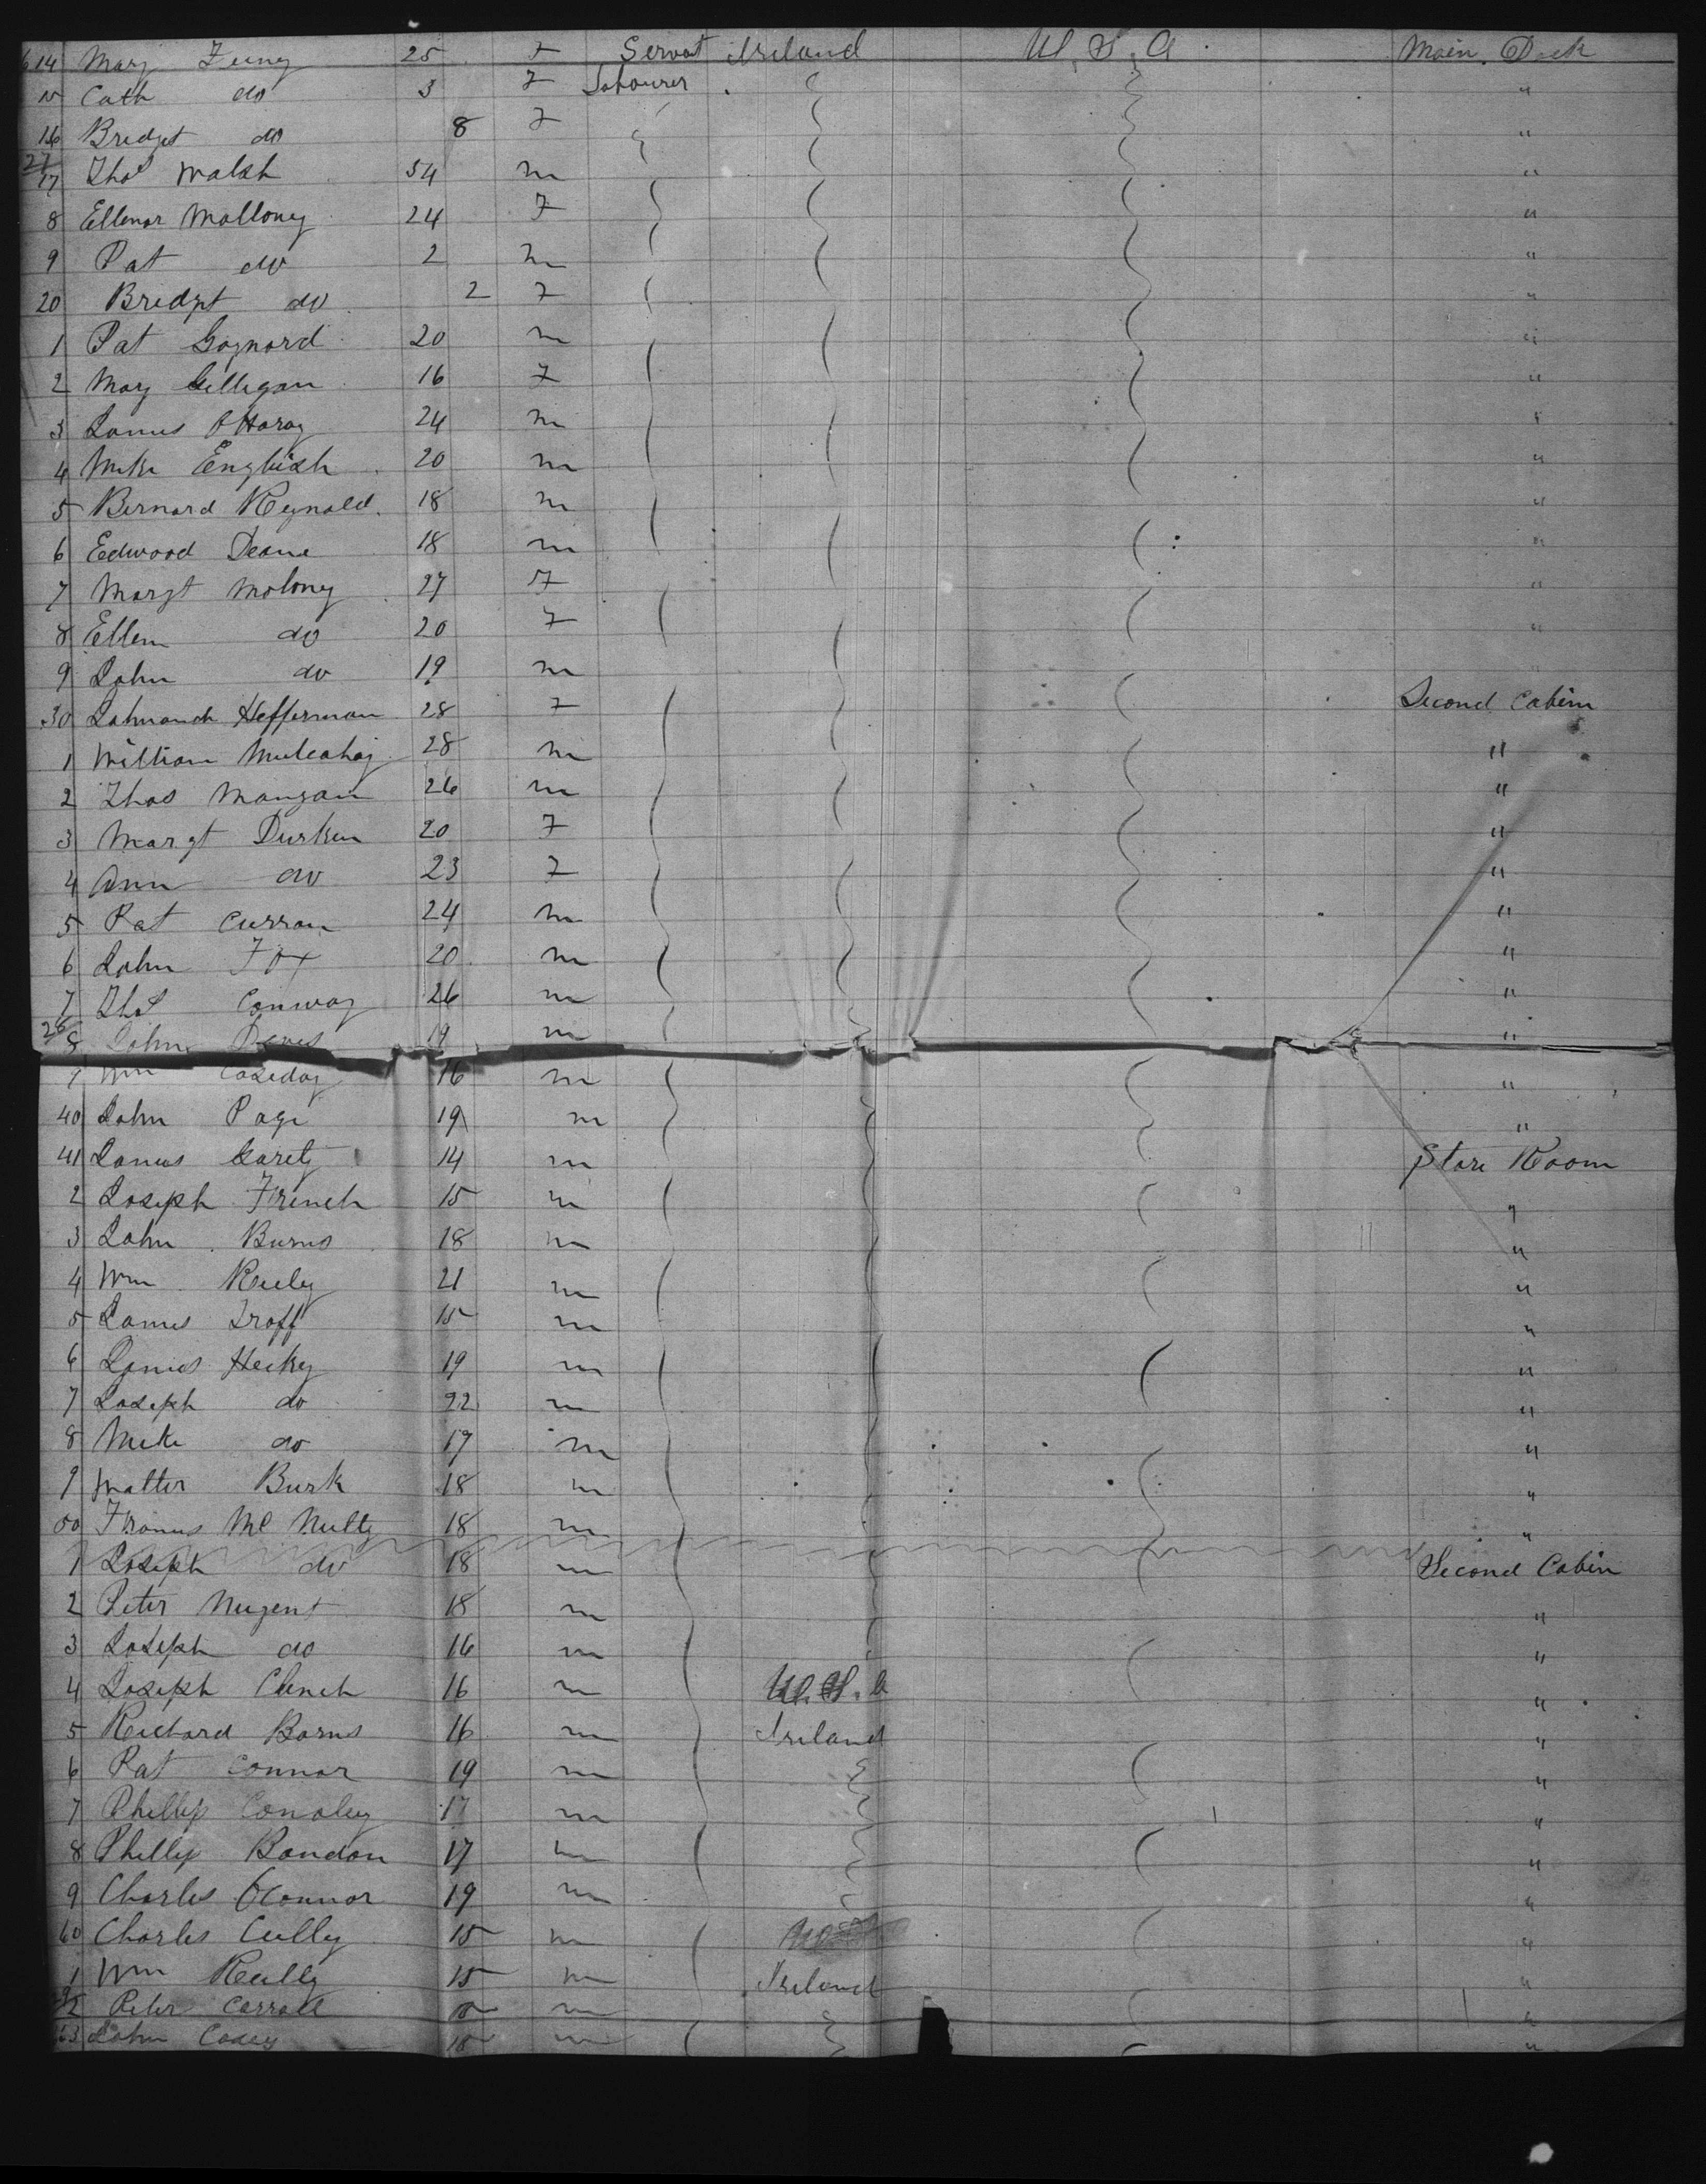 614 Mary Feeny 25 F Servat Ireland U.S.A. Main Deck
15 Cath do 3 F Labourer "
16 Bridget do 8 F "
17 Thos Walsh 54 m "
8 Ellenor Mallony 24 F "
9 Pat do 2 m "
20 Bridgt do 2 F "
1 Pat Gaynard 20 m "
2 Mary Gilligan 16 F "
3 James OHaray 24 m "
4 Mike English 20 m "
5 Bernard Reynold. 18 m "
6 Edward Deane 18 m "
7 Margt Molony 27 F "
8 Ellen do 20 F "
9 John do 19 m
30 Hefferman 28 F Second Cabin
1 William Mulcahay 28 m "
2 Thos Mangan 26 m "
3 Margt Durken 20 F "
4 Ann do 23 F "
5 Pat Curran 24 m "
6 John Fox 20 m "
7 Thos Conway 26 m "
8 John 19 m "
9 Wm Caseday 16 m "
40 John Page 19 m "
41 James Garety 14 m Store Room
2 Joseph French 15 m "
3 John Burns 18 m "
4 Wm Reily 21 m "
5 James 15 m "
6 James Heekey 19 m "
7 Joseph do 22 m "
8 Mike do 17 m "
9 Walter Burk 18 m "
50 Francis Mc Nulty 18 m "
1 Joseph do 18 m Second Cabin
2 Peter Nugent 18 m "
3 Joseph do 16 m "
4 Joseph Clinch 16 m "
5 Richard Barns 16 m Ireland "
6 Pat Connor 19 m "
7 Phillip Conoley 17 m "
8 Phillip Bandon 17 m "
9 Charles OConnor 19 m "
60 Charles Cully 15 m "
1 Wm Reilly 15 m Ireland "
2 Peter Carroll m "
63 John Casey 18 m "